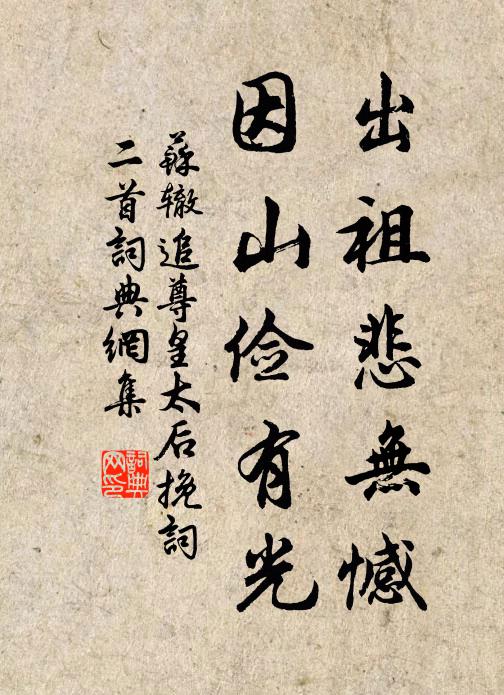 出祖悲無憾
因山儉有光
蘇轍追尊皇太后挽詞
二首詞典網集
詞典網印